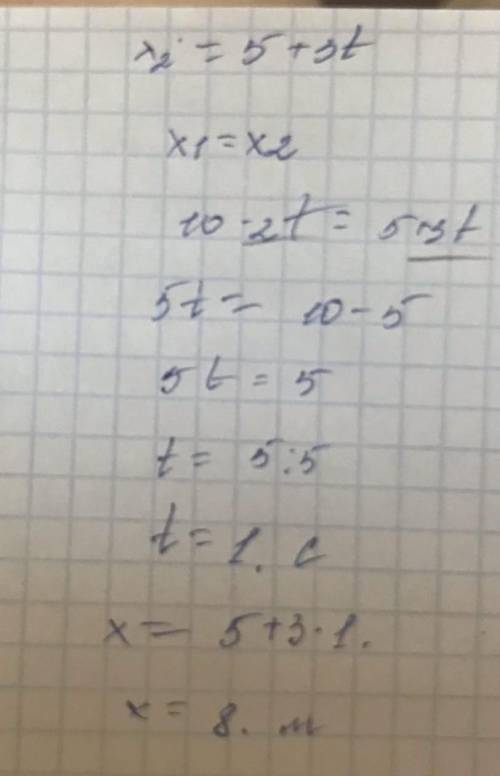 x2 = 5+3t
x1=x2
10-2t = 5+3t
5t = 10-5
5t = 5
t = 5:5
t = 1. с
x = 5+3·1.
x = 8. м